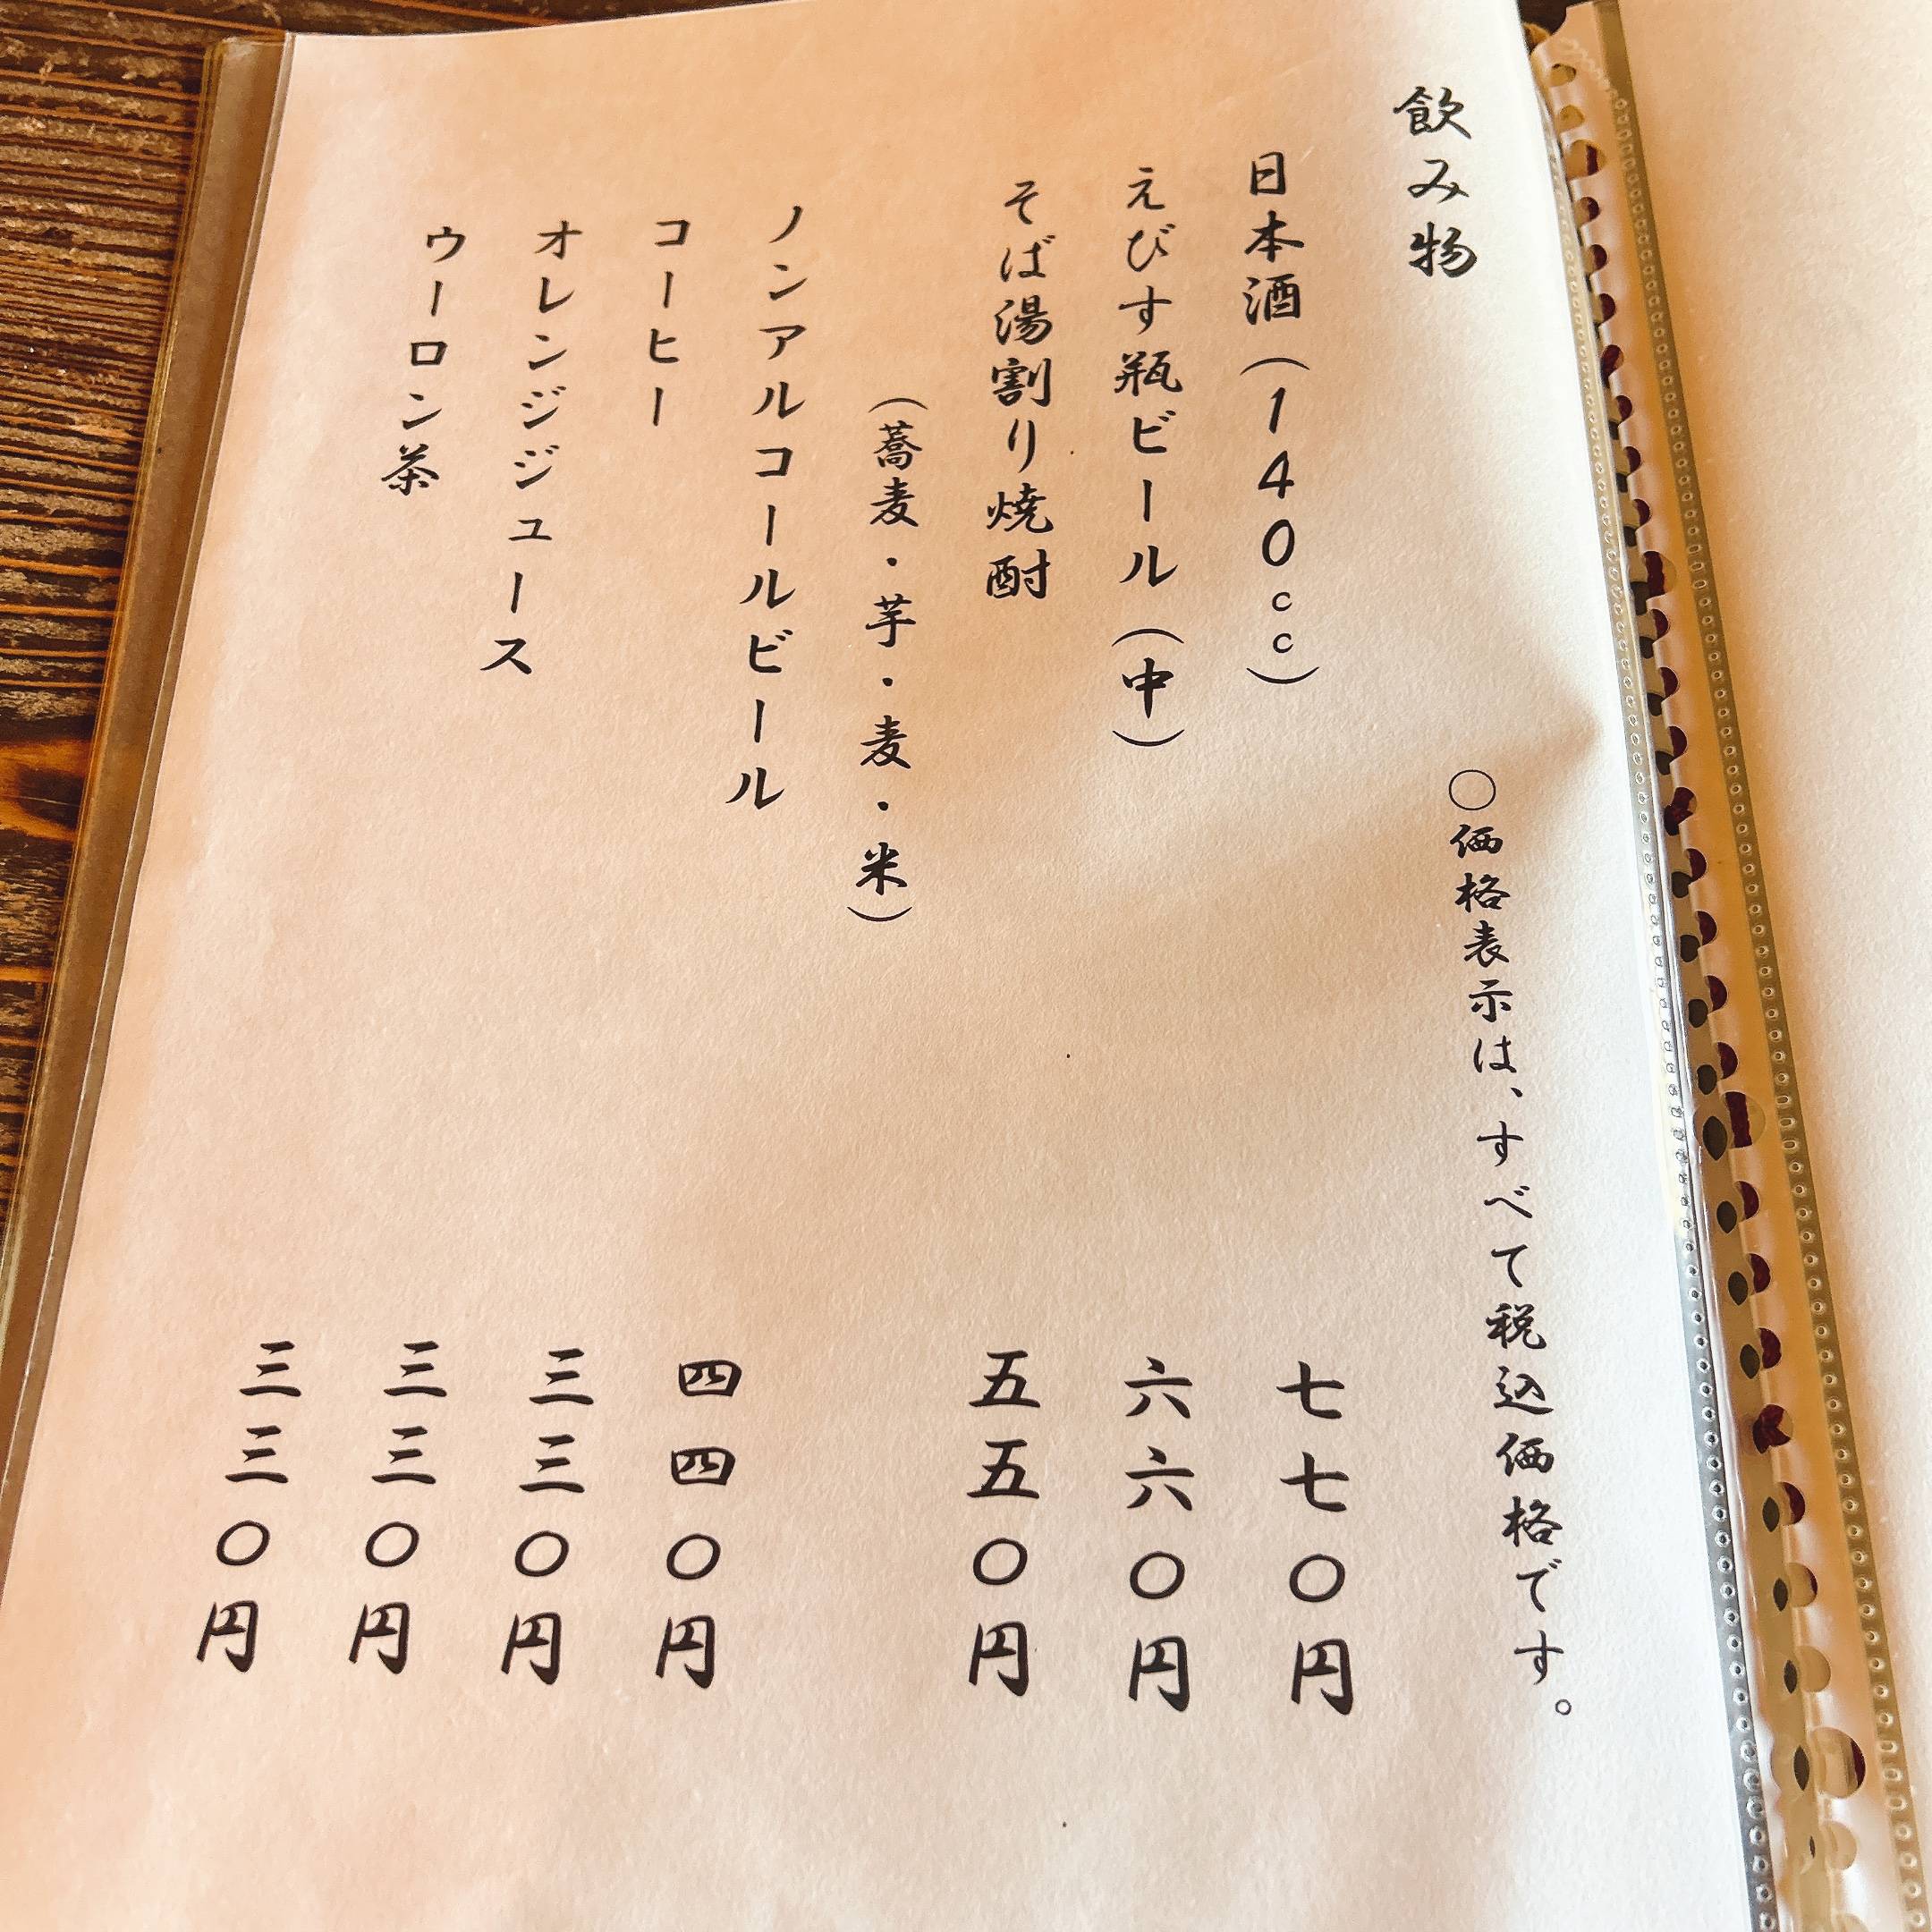 飲み物
○価格表示は、すべて税込価格です。
日本酒（140cc） 七七〇円
えびす瓶ビール（中） 六六〇円
そば湯割り焼酎 五五〇円
（蕎麦・芋・麦・米）
ノンアルコールビール 四四〇円
コーヒー 三三〇円
オレンジジュース 三三〇円
ウーロン茶 三三〇円